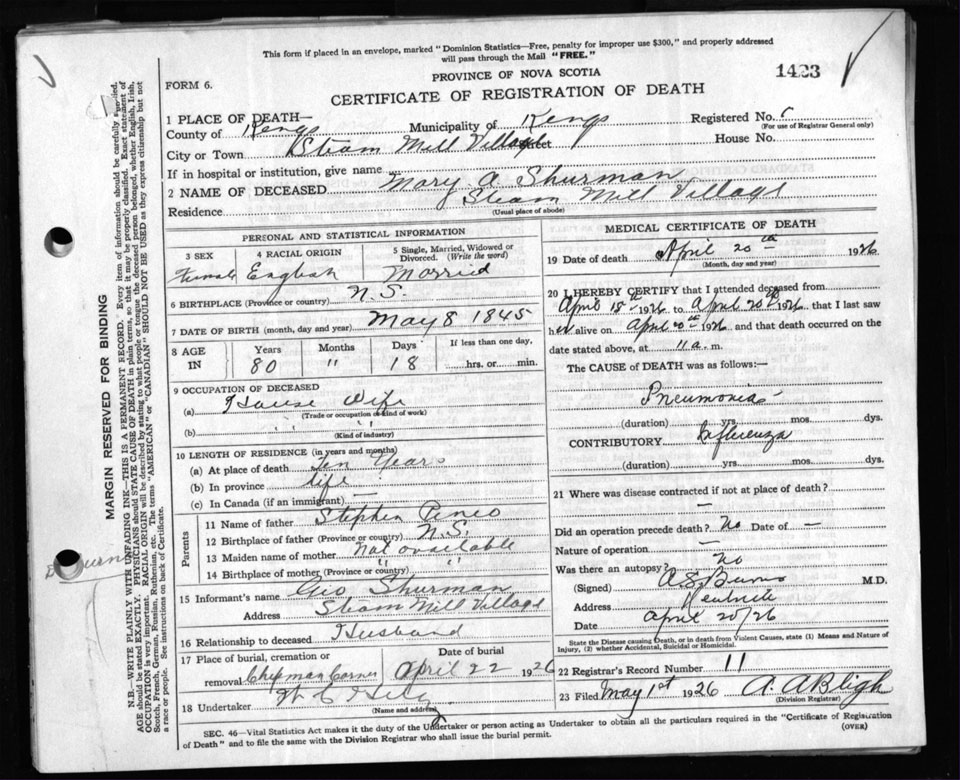 This form if placed in an envelope, marked "Dominion Statistics—Free, penalty for improper use $300," and properly addressed
will pass through the Mail "FREE."
1423
FORM 6.
PROVINCE OF NOVA SCOTIA
CERTIFICATE OF REGISTRATION OF DEATH
1 PLACE OF DEATH—
County of Kings Municipality of Kings Registered No.
(For use of Registrar General only)
City or Town Steam Mill Village Street House No.
If in hospital or institution, give name
2 NAME OF DECEASED Mary A Shurman
Residence Steam Mill Village
(Usual place of abode)
PERSONAL AND STATISTICAL INFORMATION
3 SEX 4 RACIAL ORIGIN 5 Single, Married, Widowed or Divorced. (Write the word)
Female English Married
6 BIRTHPLACE (Province or country) N.S.
7 DATE OF BIRTH (month, day and year) May 8 1845
8 AGE IN Years Months Days If less than one day.
80 " 18 hrs. or min.
9 OCCUPATION OF DECEASED
(a) House Wife
(Trade or occupation or kind of work)
(b)
(Kind of industry)
10 LENGTH OF RESIDENCE (in years and months)
(a) At place of death Ten Years
(b) In province life
(c) In Canada (if an immigrant) —
Parents
11 Name of father Stephen Pineo
12 Birthplace of father (Province or country) N.S.
13 Maiden name of mother Not available
14 Birthplace of mother (Province or country) " "
15 Informant's name Geo Shurman
Address Steam Mill Village
16 Relationship to deceased Husband
17 Place of burial, cremation or removal Chipman Corner
Date of burial April 22 1926
18 Undertaker
(Name and address)
MEDICAL CERTIFICATE OF DEATH
19 Date of death April 20th 1926
(Month, day and year)
20 I HEREBY CERTIFY that I attended deceased from
April 18th 1926 to April 20th 1926 that I last saw
her alive on April 20th 1926 and that death occurred on the
date stated above, at 11 a. m.
The CAUSE of DEATH was as follows:—
Pneumonia
(duration) yrs. mos. dys.
CONTRIBUTORY Influenza
(duration) yrs. mos. dys.
21 Where was disease contracted if not at place of death?
—
Did an operation precede death? No Date of —
Nature of operation —
Was there an autopsy? No
(Signed) A S Burns M.D.
Address Kentville
Date April 20/26
State the Disease causing Death, or in death from Violent Causes, state (1) Means and Nature of
Injury, (2) whether Accidental, Suicidal or Homicidal.
22 Registrar's Record Number 11
23 Filed May 1st 1926 A. A Bligh
(Division Registrar)
SEC. 46—Vital Statistics Act makes it the duty of the Undertaker or person acting as Undertaker to obtain all the particulars required in the "Certificate of Registration
of Death" and to file the same with the Division Registrar who shall issue the burial permit.
(OVER)
MARGIN RESERVED FOR BINDING
N.B.—WRITE PLAINLY WITH UNFADING INK—THIS IS A PERMANENT RECORD. Every item of information should be carefully supplied.
AGE should be stated EXACTLY. PHYSICIANS should STATE CAUSE OF DEATH in plain terms, so that it may be properly classified. Exact statement of
OCCUPATION is very important. RACIAL ORIGIN will be described by stating to what people or tongue the deceased person belonged, whether English, Irish,
Scotch, French, German, Russian, Ruthenian, etc. The terms "AMERICAN" or "CANADIAN" SHOULD NOT BE USED as they express citizenship but not
a race or people. See instructions on back of Certificate.